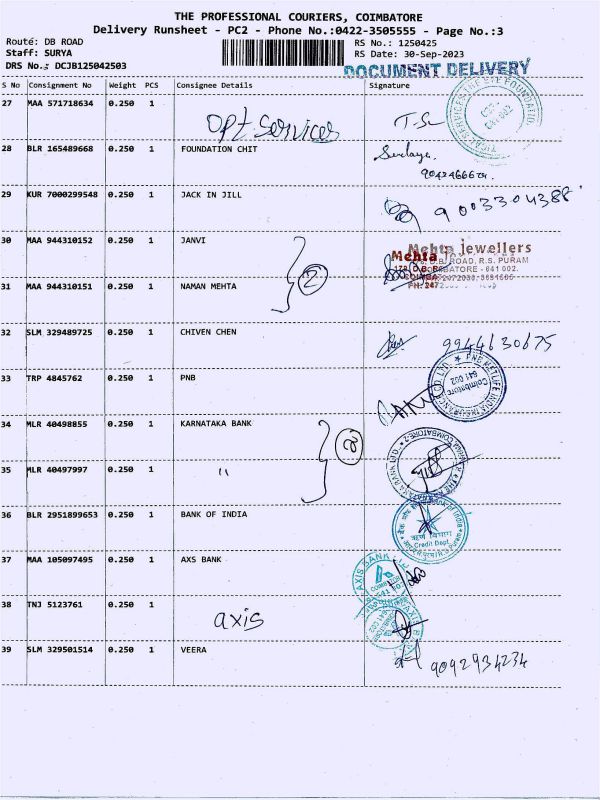 THE PROFESSIONAL COURIERS, COIMBATORE
Delivery Runsheet - PC2 - Phone No.:0422-3505555 - Page No.:3
Route: DB ROAD RS No.: 1250425
Staff: SURYA RS Date: 30-Sep-2023
DRS No.: DCJB125042503 DOCUMENT DELIVERY
S No Consignment No Weight PCS Consignee Details Signature
27 MAA 571718634 0.250 1 Opt Services
28 BLR 165489668 0.250 1 FOUNDATION CHIT
29 KUR 7000299548 0.250 1 JACK IN JILL 9003304388
30 MAA 944310152 0.250 1 JANVI
Mehta Jewellers
D.B. ROAD, R.S. PURAM
COIMBATORE - 641 002.
31 MAA 944310151 0.250 1 NAMAN MEHTA
2
32 SLM 329489725 0.250 1 CHIVEN CHEN 9944630675
33 TRP 4845762 0.250 1 PNB
PNB METLIFE INDIA INSURANCE CO. LTD. Coimbatore 641 002
34 MLR 40498855 0.250 1 KARNATAKA BANK
2
35 MLR 40497997 0.250 1 "
36 BLR 2951899653 0.250 1 BANK OF INDIA
ऋण विभाग
Credit Dept.
37 MAA 105097495 0.250 1 AXS BANK
AXIS BANK
38 TNJ 5123761 0.250 1 axis
39 SLM 329501514 0.250 1 VEERA 9092934234